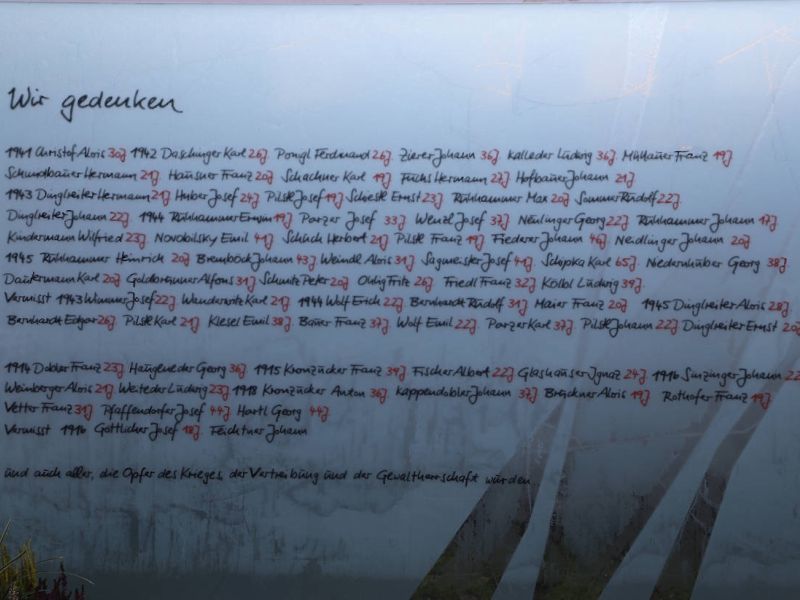 Wir gedenken
1941 Christof Alois 30J 1942 Daschinger Karl 26J. Ponigl Ferdinand 26J. Zierer Johann 36J. Kalleder Ludwig 36J. Mühlauer Franz 19J
Schmidbauer Hermann 21J. Hausner Franz 20J Schachner Karl 19J Fuchs Hermann 27J. Hofbauer Johann 21J
1943 Dinglreiter Hermann 21J Huber Josef 24J Pilstl Josef 19J Schiestl Ernst 23J Rühhammer Max 20J Sommer Rudolf 22J.
Dinglreiter Johann 22J. 1944 Rühhammer Erwin 19J Parzer Josef 33J Wenzl Josef 37J Neulinger Georg 22J Rühhammer Johann 17J
Kindermann Wilfried 23J. Novobilsky Emil 41J Schuch Herbert 21J Pilstl Franz 19J Fiederer Johann 46J. Neidlinger Johann 20J
1945 Rühhammer Heinrich 20J Bremböck Johann 43J Weindl Alois 31J Sagmeister Josef 41J Schipka Karl 65J. Niedernhuber Georg 38J
Dautermann Karl 20J Goldbrunner Alfons 31J Schmitz Peter 20J Ohlig Fritz 26J Friedl Franz 32J Kölbl Ludwig 39J.
Vermisst 1943 Wimmer Josef 22J Wanderwitz Karl 21J 1944 Wolf Erich 22J Bernhardt Rudolf 31J Maier Franz 20J 1945 Dinglreiter Alois 28J
Bernhardt Edgar 26J Pilstl Karl 21J Kiesel Emil 38J Bauer Franz 37J Wolf Emil 22J Parzer Karl 37J Pilstl Johann 22J Dinglreiter Ernst 20J
1914 Dobler Franz 23J Haugeneder Georg 36J 1915 Kronzucker Franz 39J Fischer Albert 22J Glashauser Ignaz 24J 1916 Sinzinger Johann 22
Weinberger Alois 21J Weiteder Ludwig 23J 1918 Kronzucker Anton 36J Kappendobler Johann 37J Bruckner Alois 19J Rothofer Franz 19J
Vetter Franz 31J Pfaffendorfer Josef 44J Hartl Georg 44J
Vermisst 1916 Göttlicher Josef 18J. Feichtner Johann
und auch aller, die Opfer des Krieges, der Vertreibung und der Gewaltherrschaft wurden...